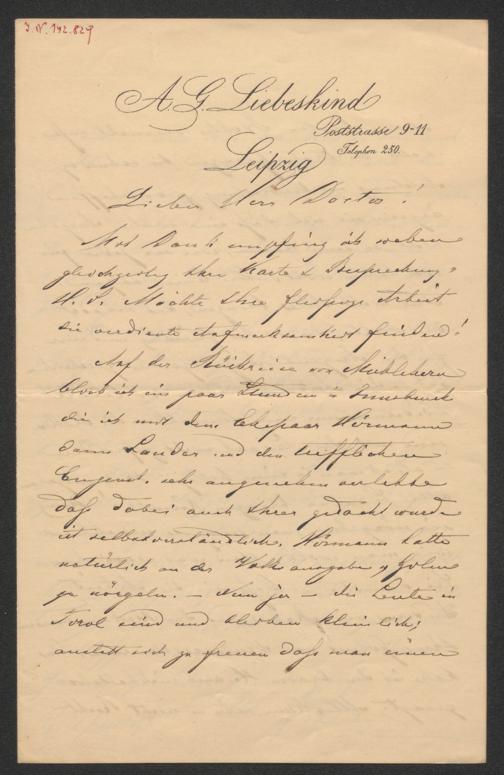 J.N. 142.829
A. G. Liebeskind
Poststrasse 9-11
Telephon 250.
Leipzig
Lieber Herr Doctor!
Mit Dank empfing ich soeben
gleichzeitig Ihre Karte & Besprechung
Möchte Ihre fleissige Arbeit
die verdiente Aufmerksamkeit finden!
Auf der Rückreise von Mühlehorn
blieb ich ein paar Stunden in Innsbruck
die ich mit dem Ehepaar Hörmann
dann Lander und dem trefflichen
sehr angenehm verlebte
daß dabei auch Ihrer gedacht wurde
ist selbstverständlich. Hörmann hatte
natürlich an der Volksausgabe v. Gilms
zu nörgeln. – Nun ja – die Leute in
Tirol sind und bleiben kleinlich;
anstatt sich zu freuen daß man einen